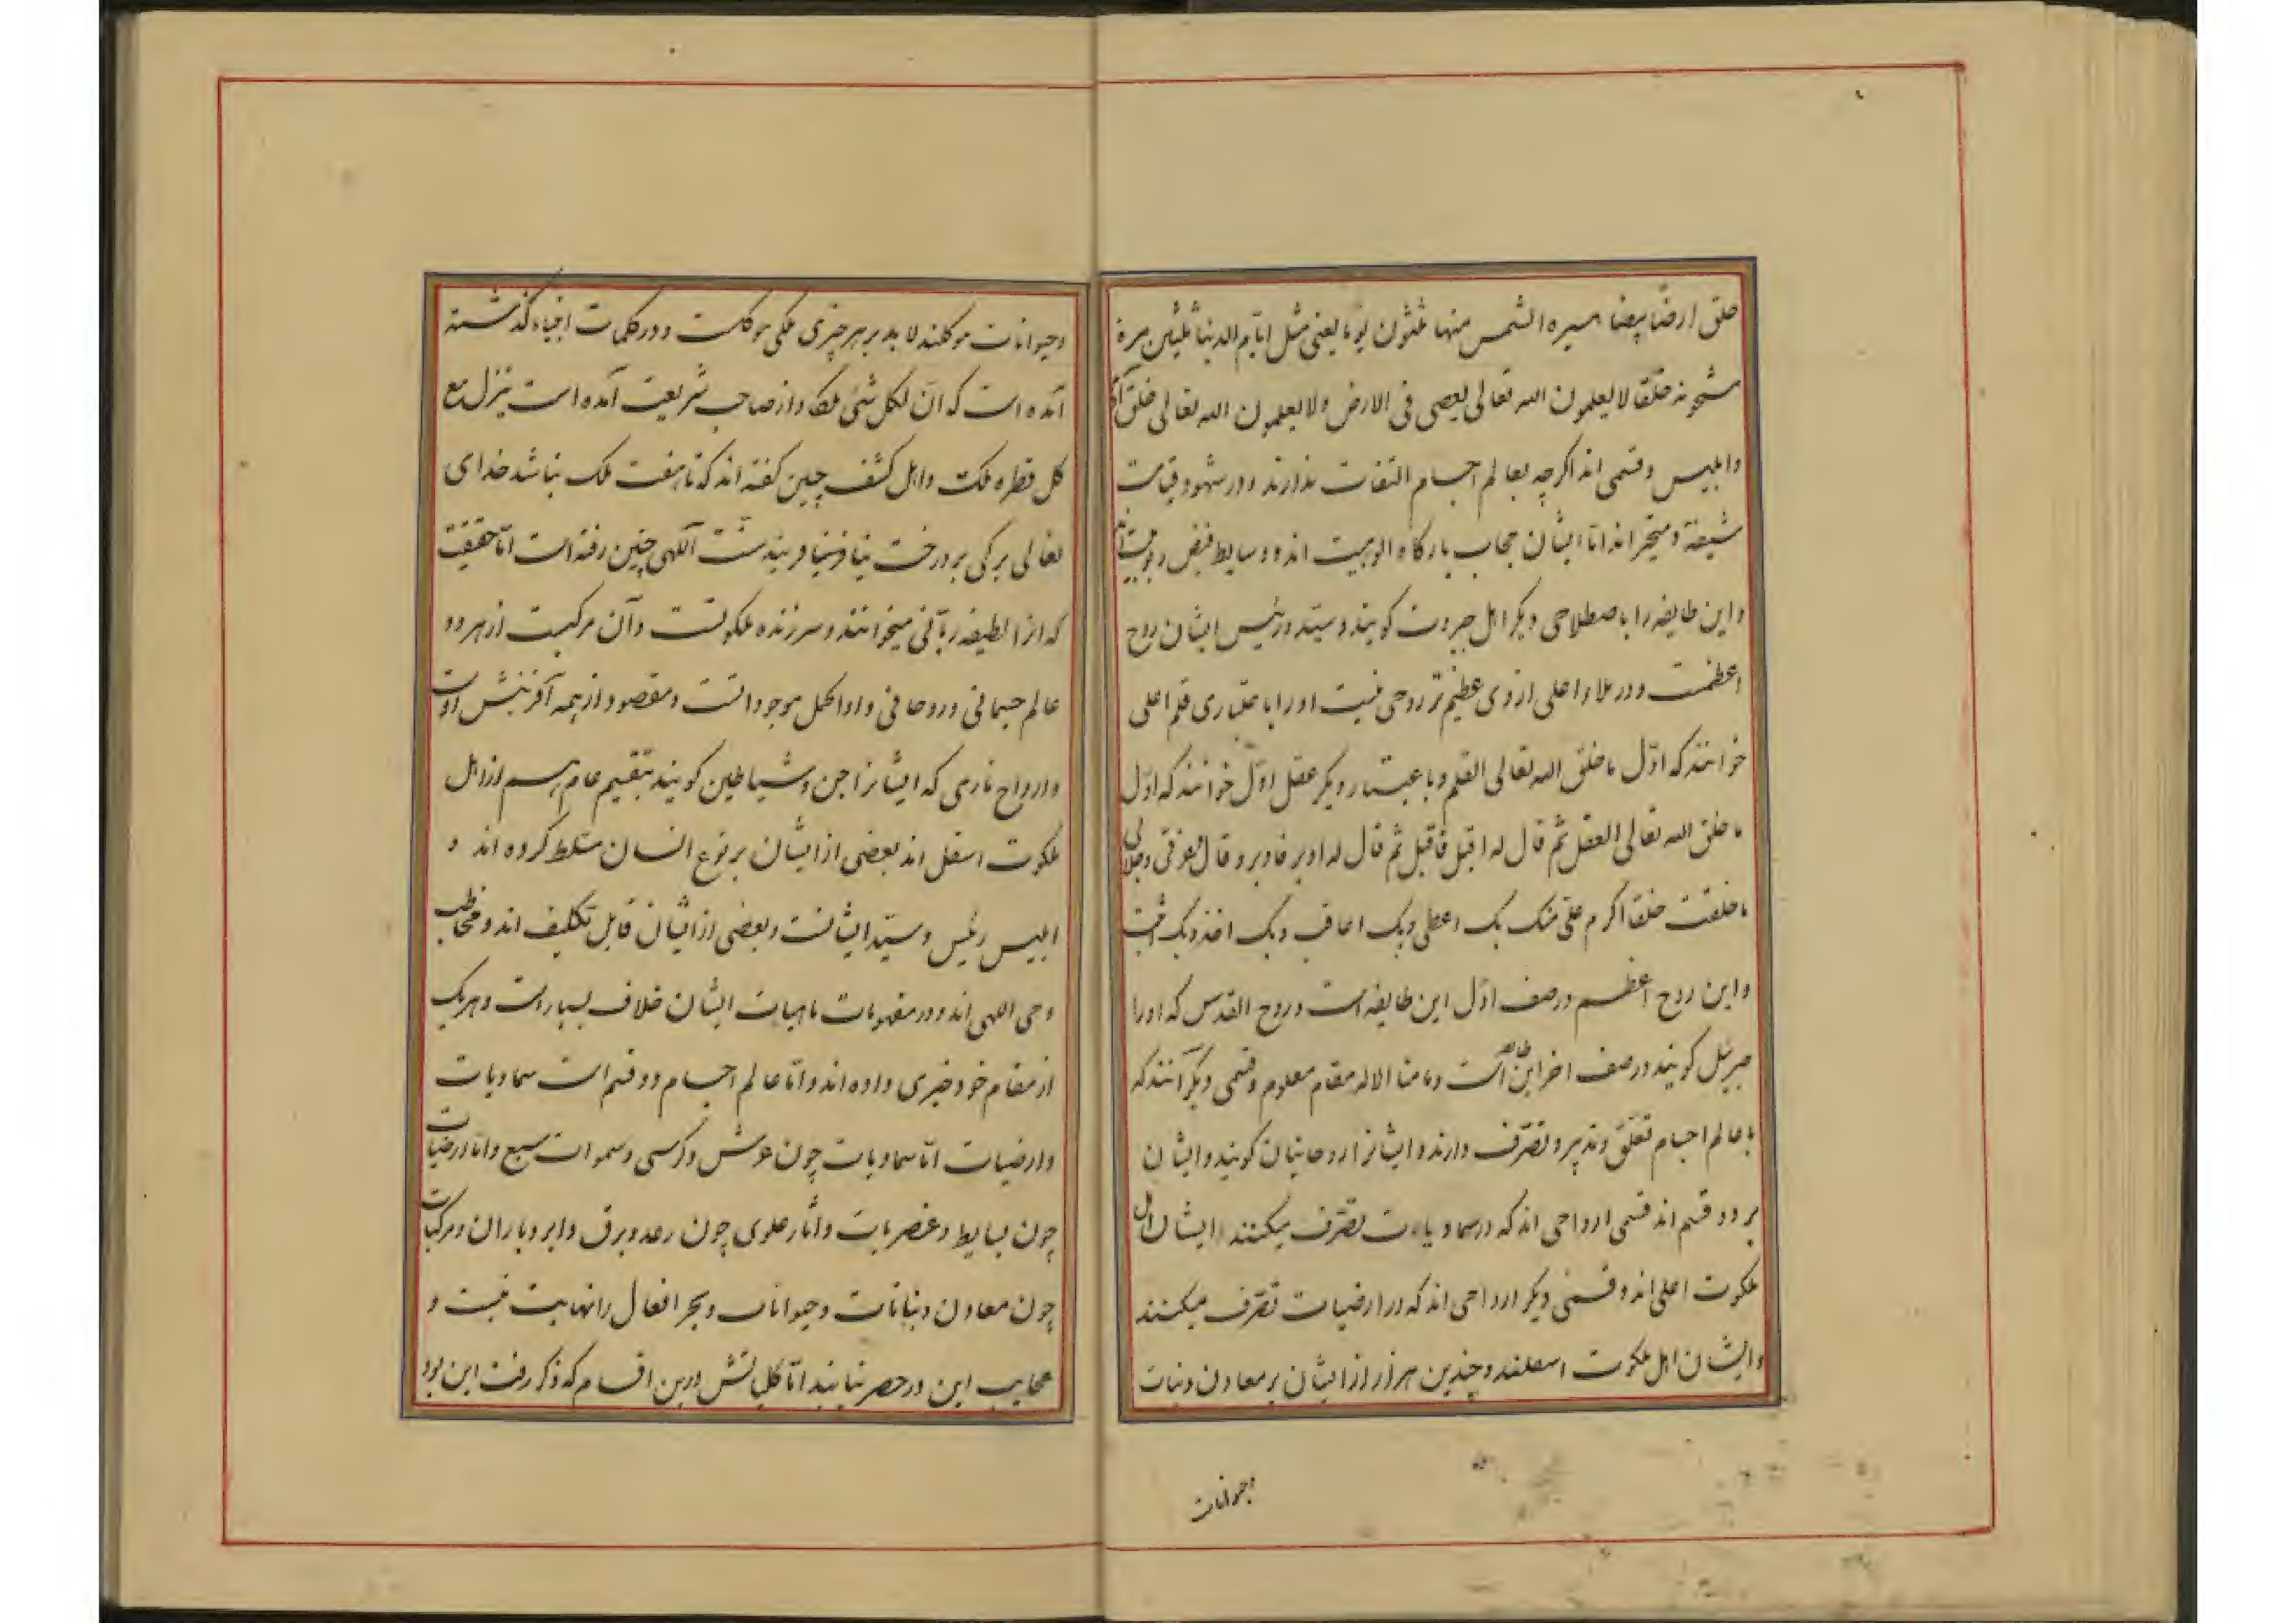 خلق ارضًا بیضا مسیره الشمس منها ثلثون یوما یعنی مثل ایام الدنیا ثلثین مرة
مشحونه خلقا لا یعلمون الله تعالی یعصی فی الارض ولا یعلمون الله تعالی خلق آدم
وابلیس وقسمی اند اکرچه بعالم اجسام التفات ندارند ودر شهود قیامت
شیفته ومتحیر اند اما ایشان حجاب بارکاه الوهیت اند ووسایط فیض ربوبیت اند
واین طایفه را باصطلاحی دیکر اهل جبروت کویند وسید ورئیس ایشان روح
اعظمت ودر ملاء اعلی ازوی عظیم تر روحی نیست اورا باعتباری قلم اعلی
خوانند که اول ما خلق الله تعالی القلم وباعتبار دیکر عقل اول خوانند که اول
ما خلق الله تعالی العقل ثم قال له اقبل فاقبل ثم قال له ادبر فادبر وقال فوعزتی وجلالی
ما خلقت خلقا اکرم علی منک بک اعطی وبک اعاقب وبک اخذ وبک اثیب
واین روح اعظم در صف اول این طایفه است وروح القدس که اورا
جبرئیل کویند در صف اخر این طایفه است وما منا الا له مقام معلوم وقسمی دیکر آنند که
با عالم اجسام تعلق وتدبیر وتصرف دارند وایشانرا روحانیان کویند وایشان
بر دو قسم اند قسمی ارواحی اند که در سماویات تصرف میکنند وایشان اهل
ملکوت اعلی اند وقسمی دیکر ارواحی اند که در ارضیات تصرف میکنند
وایشان اهل ملکوت اسفلند وچندین هزار از ایشان بر معادن ونبات
وحیوانات
وحیوانات موکلند لابد بر هر چیزی ملکی موکلست ودر کلمات انبیاء کذشته
آمده است که ان لکل شئی ملکا واز صاحب شریعت آمده است ینزل مع
کل قطره ملک واهل کشف چنین کفته اند که تا هفت ملک نباشد خدای
تعالی برکی بر درخت نیافریند سنت آلهی چنین رفته است اما حقیقت
که ازا لطیفه ربانی میخوانند وسر زنده ملکوتست وآن مرکبست از هر دو
عالم جسمانی وروحانی واو اکمل موجوداتست ومقصود از همه آفرینش اوست
وارواح ناری که ایشانرا جن وشیاطین کویند بتقسیم عام هم از اهل
ملکوت اسفل اند بعضی از ایشان بر نوع انسان مسلط کرده اند و
ابلیس رئیس وسید ایشانست وبعضی از ایشان قابل تکلیف اند ومخاطب
وحی اللهی اند ودر مفهومات ماهیات ایشان خلاف بسیار است وهر یک
از مقام خود خبری داده اند واما عالم اجسام دو قسم است سماویات
وارضیات اما سماویات چون عرش وکرسی وسموات سبع واما ارضیات
چون بسایط وعنصریات وآثار علوی چون رعد وبرق وابر وباران ومرکبات
چون معادن ونباتات وحیوانات وبحر افعال را نهایت نیست و
عجایب این در حصر نیایند اما کلیاتش درین اقسام که ذکر رفت این بود